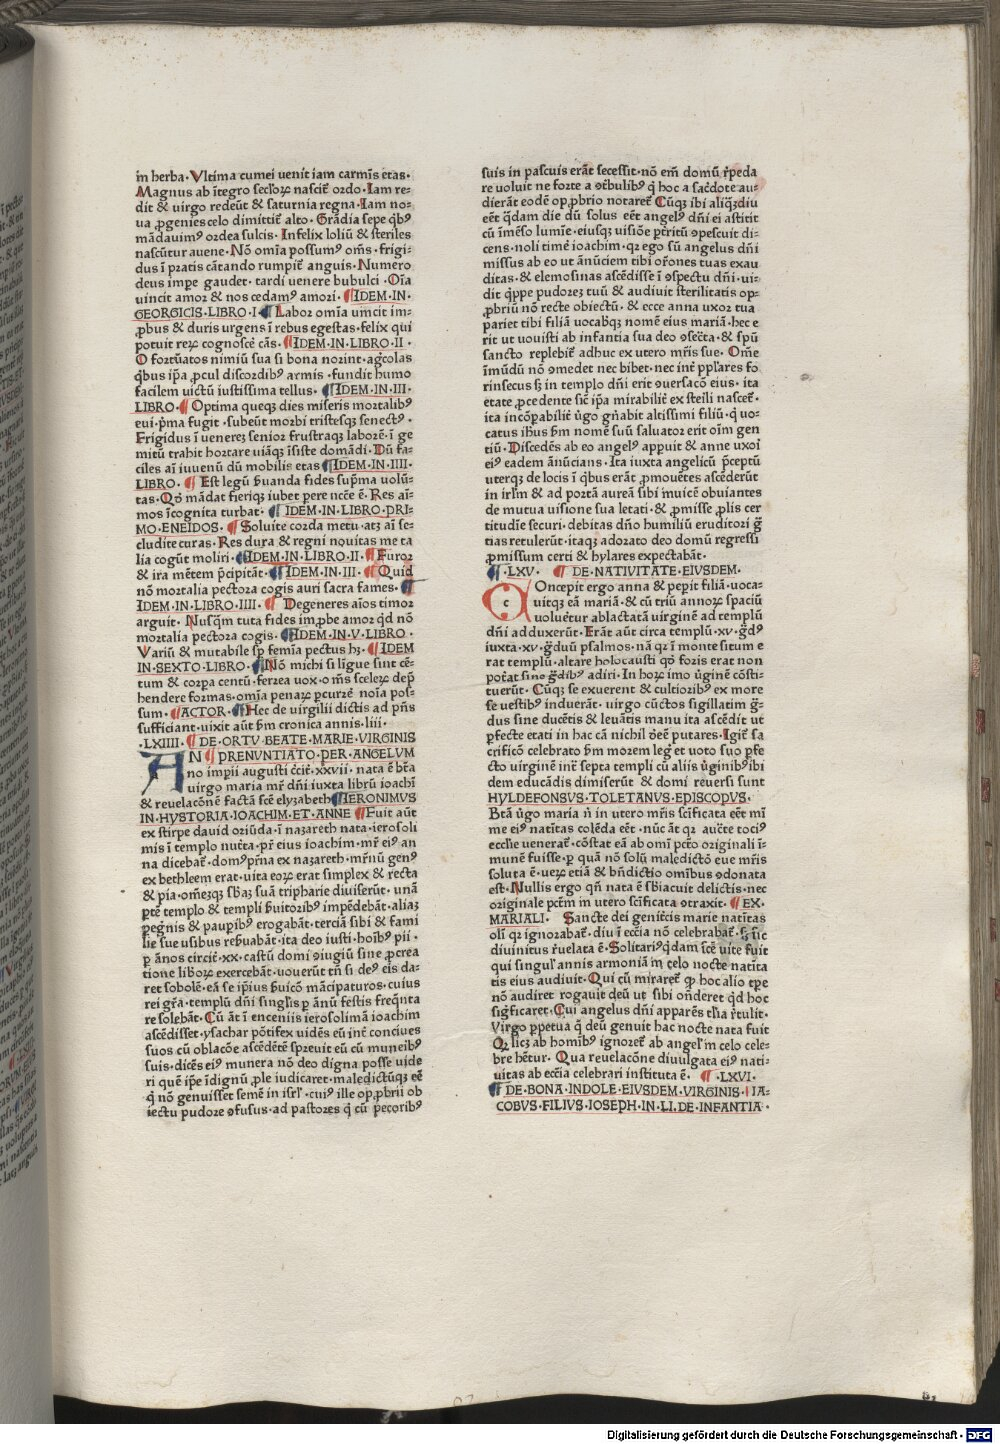 in herba. Vltima cumei uenit iam carmīs etas.
Magnus ab ītegro seclorꝫ nascit᷑ ordo. Iam re-
dit & uirgo redeūt & saturnia regna. Iam no-
ua ꝓgenies celo dimittit᷑ alto. Grādia sepe qͥbꝰ
mādauimꝰ ordea sulcis. Infelix loliū & steriles
nascūtur auene. Nō omīa possumꝰ oms̄. frigi-
dus ī pratis cātando rumpit᷑ anguis. Numero
deus impe gaudet. tardi uenere bubulci. Oīa
uincit amor & nos cedamꝰ amori. ¶ IDEM.IN.
GEORGICIS.LIBRO.I ¶ Labor omīa uincit im-
ꝓbus & duris urgens ī rebus egestas. felix qui
potuit reꝝ cognoscē cās. ¶ IDEM.IN.LIBRO.II.
O fortūatos nimiū sua si bona norint. agͥcolas
qͥbus ip̄a ꝓcul discordibꝰ armis. fundit humo
facilem uictū iustissima tellus. ¶ IDEM.IN.III.
LIBRO. ¶ Optima queqꝫ dies miseris mortalibꝰ
eui. pͥma fugit. subeūt morbi tristesqꝫ senectꝰ.
Frigidus ī ueneres senior frustraqꝫ laborē. ī ge
mitū trahit hortare uiāqꝫ īsiste domādi. Dū fa-
ciles aī iuuenū dū mobilis etas ¶ IDEM.IN.IIII.
LIBRO. ¶ Est legū ẜuanda fides sup̄ma uolū-
tas. Qͦ mādat fieriqꝫ iubet ꝑere nc̄ē ē. Res aīs-
mos īcognita turbat. ¶ IDEM.IN.LIBRO.PRI-
MO.ENEIDOS. ¶ Soluite corda metu. atqꝫ aī se-
cludite curas. Res dura & regni nouitas me ta
lia cogūt moliri. ¶ IDEM.IN.LIBRO.II. ¶ Furor
& ira mētem p̄cipitāt. ¶ IDEM.IN.III. ¶ Quid
nō mortalia pectora cogis auri sacra fames. ¶
IDEM.IN.LIBRO.IIII. ¶ Degeneres aīos timor
arguit. Nusqͣm tuta fides imꝓbe amor qͥd nō
mortalia pectora cogis. ¶ IDEM.IN.V.LIBRO.
Variū & mutabile sꝑ femīa pectus hꝫ. ¶ IDEM
IN.SEXTO.LIBRO. ¶ Nō michi si līgue sint cē-
tum & corꝑa centū. ferrea uox. oms̄ scelerꝫ dep̄
hendere formas. omīa penaꝝ ꝑcurrē noīa pos-
sum. ¶ ACTOR. ¶ Hec de uirgilii dictis ad pn̄s
sufficiant. uixit aūt ẜm cronica annis. liii.
.LXIIII. ¶ DE.ORTV.BEATE.MARIE.VIRGINIS
AN ¶ PRENVNTIATO.PER.ANGELVM
no impii augusti c̄cit᷑. xxvii. nata ē bt̄a
uirgo maria mr̄ dn̄i iuxta librū ioachī
& reuelacōnē factā sc̄e elyzabeth ¶ IERONIMVS
IN.HYSTORIA.IOACHIM.ET.ANNE ¶ Fuit aūt
ex stirpe dauid oriūda. ī nazareth nata. ierosoli
mis ī templo nut̄ta. pr̄ eius ioachim. mr̄ eiꝰ an
na dicebat᷑. domꝰ pr̄na ex nazareth. mr̄nū genꝰ
ex bethleem erat. uita eoꝝ erat simplex & recta
& pia. om̄ezqꝫ sb̄aꝫ suā tripharie diuiserūt. unā
ptē templo & templi ẜuitoribꝰ impēdebāt. aliaꝫ
ꝑegn̄is & paupibꝰ erogabāt. terciā sibi & fami
lie sue usibus reẜuabāt. ita deo iusti. hoībꝰ pii.
ꝑ ānos circit᷑. xx. castū domi ꝯiugiū sine ꝓcrea
tione liboꝝ exercebāt. uouerūt tn̄ si deꝰ eis da-
ret sobolē. eā se ip̄ius ẜuicō mācipaturos. cuius
rei gr̄a. templū dn̄i singlis ꝑ ānū festis freqͥnta
re solebāt. Cū āt ī enceniis ierosolimā ioachim
ascēdisset. ysachar pōtifex uidēs eū int̄ conciues
suos cū oblacōe ascēdētē spreuit eū cū muneibꝰ
suis. dicēs eiꝰ munera nō deo digna posse uide
ri quē ip̄e īdignū ꝓle iudicaret. maledictūqꝫ eē
q̄ nō genuisset semē in isrl̄. cuiꝰ ille opꝓbrii ob
iectu pudorꝫ ꝯfusus. ad pastoꝝs q̄ cū pecoribꝰ
suis in pascuis erāt secessit. nō em̄ domū r̄peda
re uoluit ne forte a ꝯt̄bulibꝰ q̄ hoc a sac̄dote au-
dierāt eodē opꝓbrio notaret᷑. Cūqꝫ ibi aliqͣꝫdiu
eēt qͣdam die dū solus eēt angelꝰ dn̄i ei astitit
cū īmēso lumīe. eiusqꝫ uisiōe ꝑt̄ritū ꝯpescuit di-
cens. noli timē ioachim. qꝛ ego sū angelus dn̄i
missus ab eo ut ānūciem tibi or̄ones tuas exau
ditas. & elemosinas ascēdisse ī ꝯspectu dn̄i. ui-
dit qͥppe pudoreꝫ tuū & audiuit sterilitatis op-
ꝓbriū nō recte obiectū. & ecce anna uxor tua
pariet tibi filiā uocabqꝫ nomē eius mariā. hec e
rit ut uouisti ab infantia sua deo ꝯsec̄ta. & spū
sancto replebit᷑ adhuc ex utero mr̄is sue. Om̄e
īmūdū nō ꝯmedet nec bibet. nec int̄ ppl̄ares fo
rinsecus sꝫ in templo dn̄i erit ꝯuersacō eius. ita
etate ꝓcedente sic̄ ip̄a mirabilit᷑ ex steili nascet᷑.
ita incōpabilit᷑ ūgo gn̄abit altissimi filiū. q̄ uo-
catus ih̄us ẜm nomē suū saluator erit oīm gen
tiū. Discedēs ab eo angelꝰ appuit & anne uxoī
eiꝰ eadem ānūcians. Ita iuxta angelicū p̄ceptū
uterqꝫ de locis ī qͥbus erāt ꝓmouētes ascēderūt
in irl̄m & ad portā aureā sibi inuicē obuiantes
de mutua uisione sua letati. & ꝓmisse ꝓlis cer
titudīe securi. debitas dn̄o humiliū eruditori gͣ
tias retulerūt. itaqꝫ adorato deo domū regressi
ꝓmissum certi & hylares expectabāt.
¶ .LXV. ¶ DE.NATIVITATE.EIVSDEM.
COncepit ergo anna & peꝑit filiā. uoca-
uitqꝫ eā mariā. & cū triū annoꝝ spaciū
uoluet᷑ur ablactatā uirginē ad templū
dn̄i adduxerūt. Erāt aūt circa templū. xv. gͣdꝰ
iuxta. xv. gͣduū psalmos. nā qꝛ ī monte situm e
rat templū. altare holocausti qͦ foris erat non
potāt sine gͣdibꝰ adiri. In hoꝝ imo ūginē cōsti-
tuerūt. Cūqꝫ se exuerent & cultioribꝰ ex more
se uestibꝰ induerāt. uirgo cūctos sigillatim gͣ-
dus sine ducētis & leuātis manu ita ascēdit ut
ꝑfecte etati in hac cā nichil d̄eē putares. Igit᷑ sa
crificō celebrato ẜm mozem legͥ et uoto suo ꝑfe
cto uirginē int̄ septa templi cū aliis ūginibꝰ ibi
dem educādis dimiserūt & domī reuersi sunt
HYLDEFONSVS.TOLETANVS.EPISCOPVS.
Bt̄ā ūgo maria n̄ in utero mr̄is sc̄ificata eēt mī
me eiꝰ natītas colēda eēt. nūc āt qꝛ auc̄te tociꝰ
eccl̄ie uenerat᷑. cōstat eā ab omī pc̄to originali ī-
munē fuisse. ꝑ quā nō solū maledictō eue mr̄is
soluta ē. ueꝝ etiā & bn̄dictio omībus ꝯdonata
est. Nullis ergo qn̄ nata ē sb̄iacuit delictis. nec
originale pctm̄ in utero sc̄ificata ꝯtraxit. ¶ EX.
MARIALI. Sanctē dei genit̄cis marie natītas
olī qꝛ ignorabat᷑. diu ī ecc̄ia nō celebrabat᷑. sꝫ sic
diuinitus r̄uelata ē. Solitariꝰ qͥdam sc̄ē uite fuit
qui singul̄ annis armoniā in celo nocte natīta
tis eius audiuit. Qui cū miraret᷑ qͣ hoc alio tp̄e
nō audiret rogauit deū ut sibi onderet qͥd hoc
sigͥficaret. Cui angelus dn̄i apparēs tl̄ia r̄tulit.
Virgo ꝑpetua q̄ deū genuit hac nocte nata fuit
Qꝛ licꝫ ab homībꝰ ignoret᷑ ab angel̄ in celo cele-
bre hētur. Qua reuelacōne diuulgata eiꝰ nati-
uitas ab ecc̄ia celebrari instituta ē. ¶ .LXVI.
¶ DE.BONA.INDOLE.EIVSDEM.VIRGINIS. IA-
COBVS.FILIVS.IOSEPH.IN.LI.DE.INFANTIA.
Digitalisierung gefördert durch die Deutsche Forschungsgemeinschaft - DFG